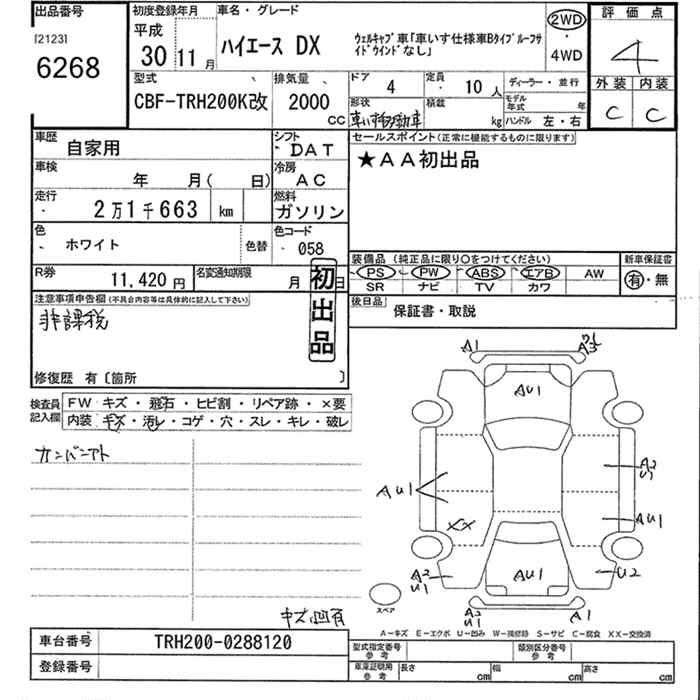 出品番号
[2123]
6268
初度登録年月
平成
30 11 月
車名・グレード
ハイエース DX
ウェルキャブ車「車いす仕様車Bタイプルーフサイドウインドなし」
2WD
・
4WD
評価点
4
外装 内装
C C
型式
CBF-TRH200K改
排気量
2000
CC
ドア
4
定員
10 人
ディーラー・並行
形状
車いす移動車
積載
kg
モデル年式 年
ハンドル 左・右
車歴
自家用
シフト
DAT
車検
年 月( 日)
冷房
AC
走行
2万1千663 km
燃料
ガソリン
色
ホワイト
色替
色コード
058
R券
11,420 円
名変通知期限
月 日
初出品
セールスポイント(正常に機能するものに限ります)
★AA初出品
装備品 (純正品に限り○をつけてください)
PS PW ABS エアB AW
SR ナビ TV カワ
新車保証書
有・無
後日品
保証書・取説
注意事項申告欄(不具合内容等は具体的に記入して下さい)
非課税
修復歴 有〔箇所 〕
検査員記入欄
FW キズ・飛石・ヒビ割・リペア跡・×要
内装 キズ・汚レ・コゲ・穴・スレ・キレ・破レ
カンバンアト
キズ凹有
A1
AU1
AU1
A2
U1
AU1
XX
A2
U1
U2
AU1
A2
U1
A1
スペア
A−キズ E−エクボ U−凹み W−補修跡 S−サビ C−腐食 XX−交換済
車台番号
TRH200-0288120
登録番号
型式指定番号
参考
類別区分番号
参考
車庫証明用
参考
長さ cm 幅 cm 高さ cm